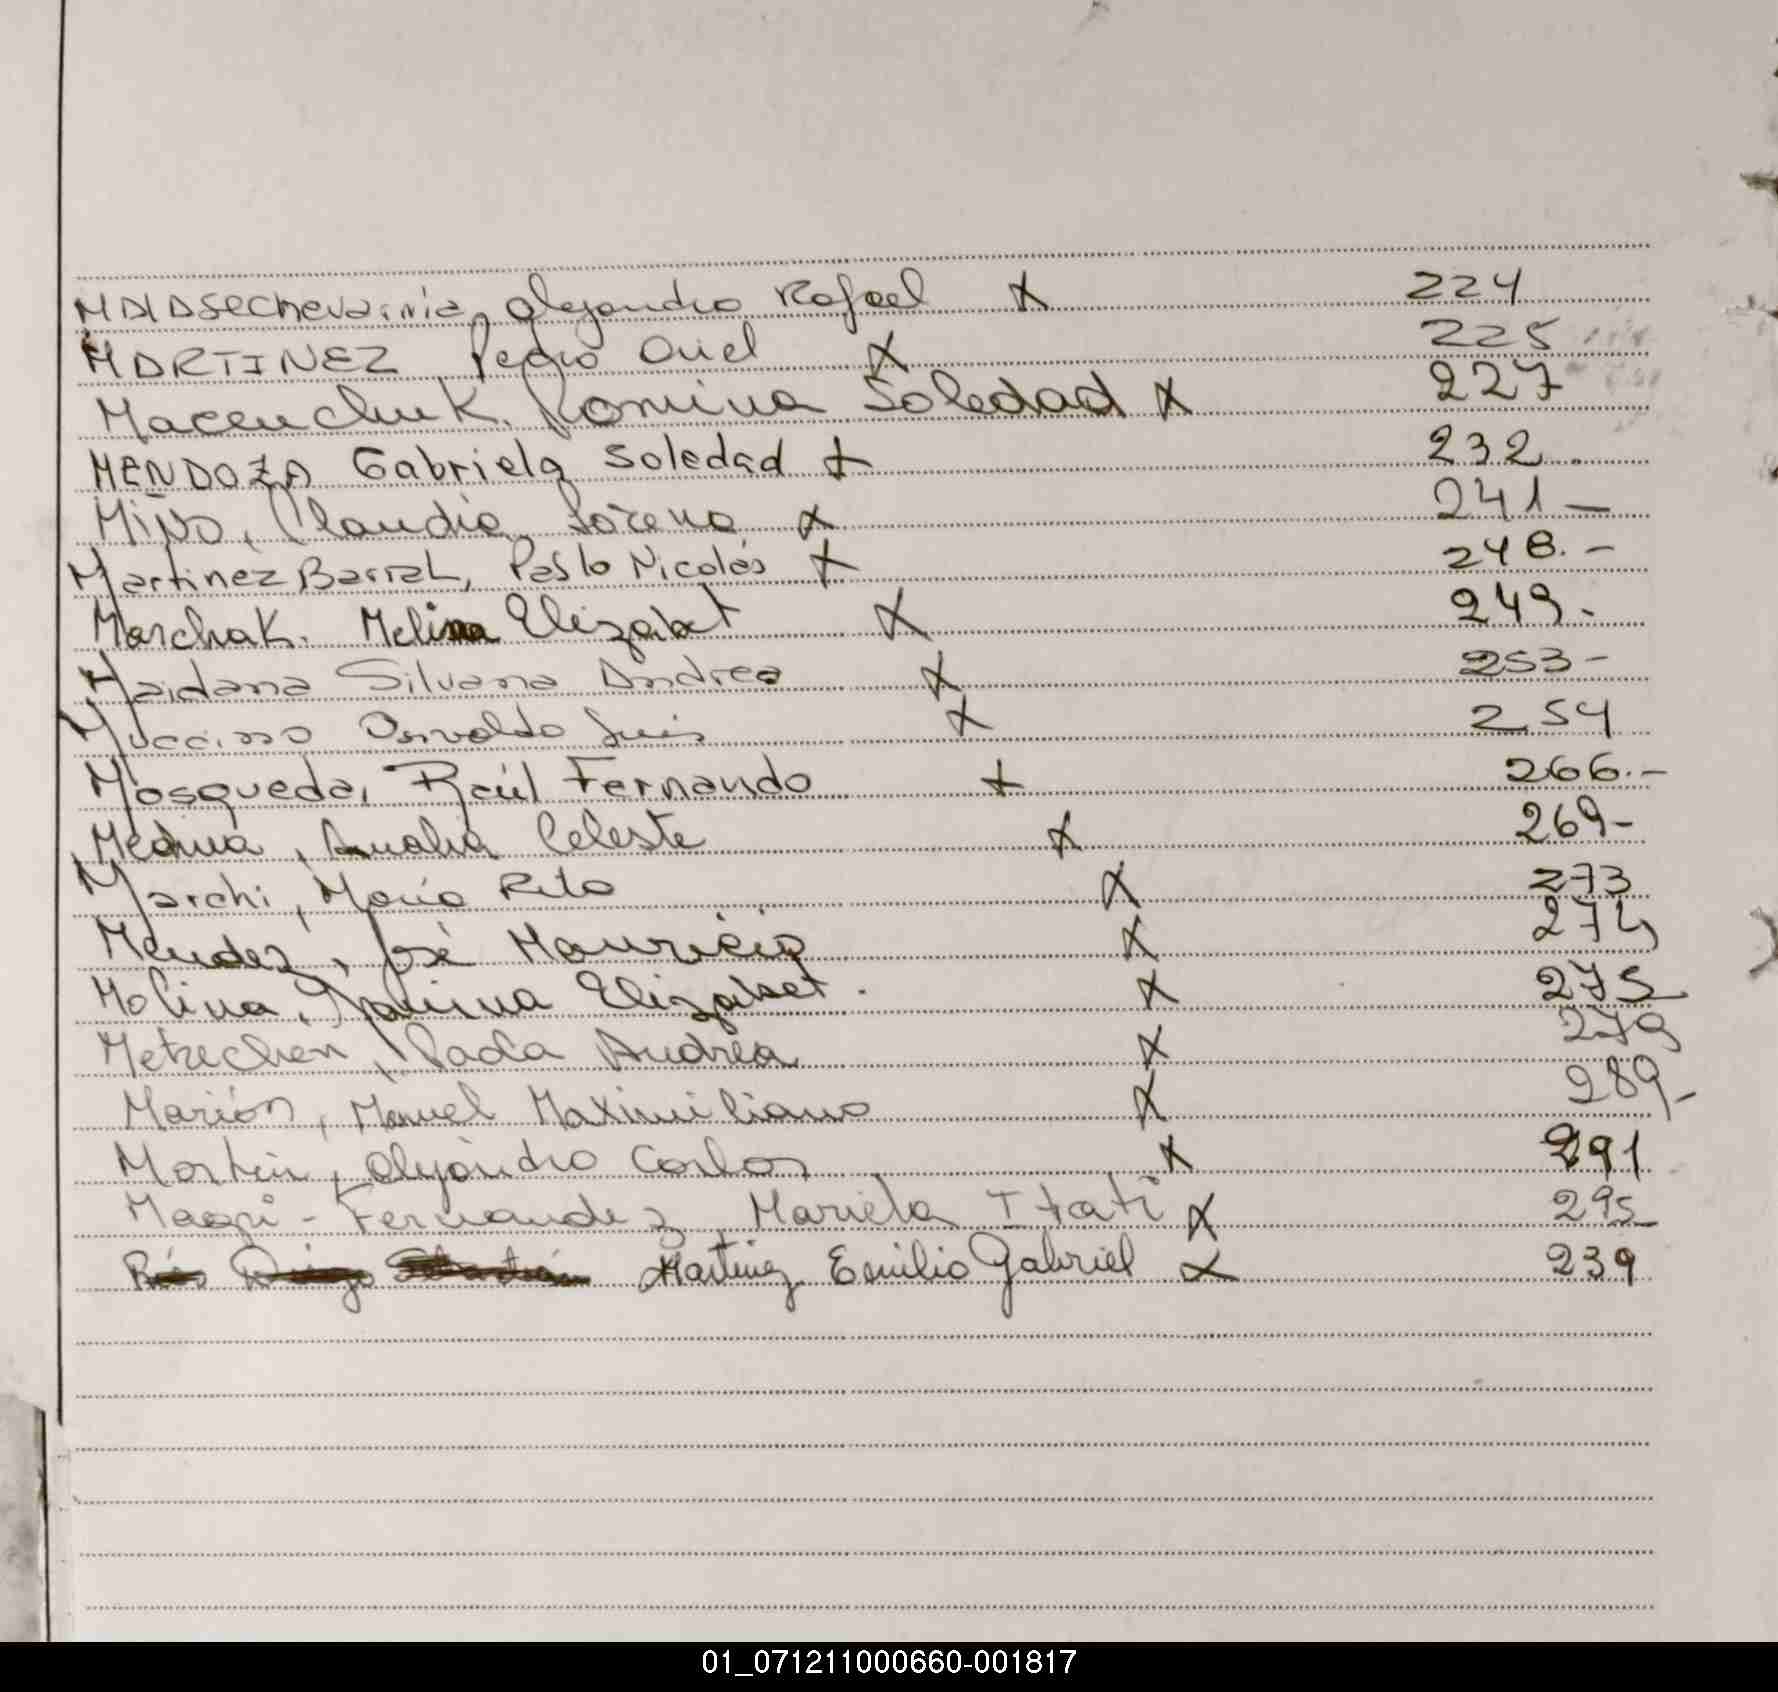 MAIDSechevarria, Alejandro Rafael X 224
MARTINEZ Pedro Oriel X 225
Macenchuk, Romina Soledad X 227
MENDOZA Gabriela Soledad X 232
MIÑO, Claudia Lorena X 241 -
Martinez Barrat, Pablo Nicolás X 248.-
Marchak. Melina Elizabet X 249.-
Maidana Silvana Andrea X 253-
Muccino Osvaldo Luis X 254
Mosqueda, Raúl Fernando X 266.-
Medina, Amalia Celeste X 269-
Marchi, María Rita X 273
Mendez, José Mauricio X 274
Molina, Janina Elizabet. X 275
Metrechen, Paola Andrea X 279
Marión, Manuel Maximiliano X 289-
Martin, Alejandro Carlos X 291
Magri - Fernandez Mariela Itatí X 295
Martinez Emilio Gabriel X 239
01_071211000660-001817